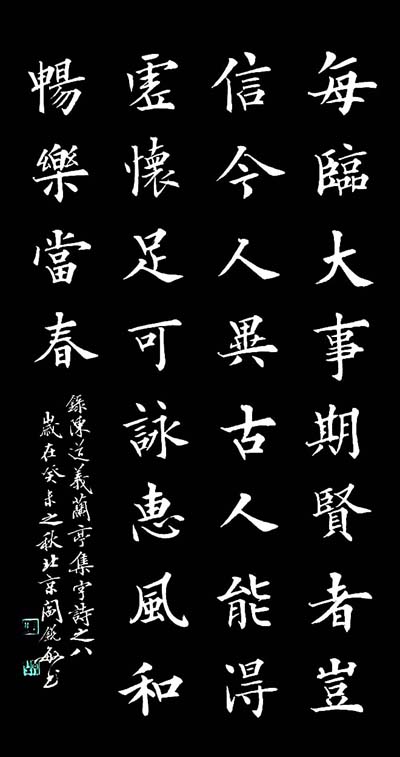 每臨大事期賢者豈
信今人異古人能得
虛懷足可詠惠風和
暢樂當春
錄陳道義蘭亭集字詩之八
歲在癸未之秋北京閻銳敏书